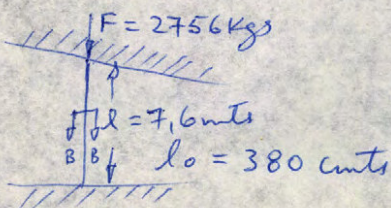 F = 2756 Kgs
l = 7,6 mts
B B
lo = 380 cmts